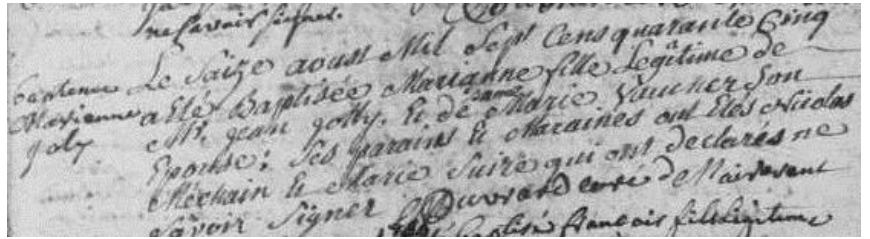 ne savoir signer.
Baptême
Marianne
Joly
Le Saize aoust Mil Sept Cens quarante Cinq
a Eté Baptisée Marianne fille Legitime de
Mr. Jean Jolly. Et de dame Marie Vaucher Son
Epouse; Ses parains Et Maraines ont Etés Nicolas
Méchain Et Marie Suire qui ont declarés ne
Savoir Signer Ouvrard curé de
baptisé francois fils legitime